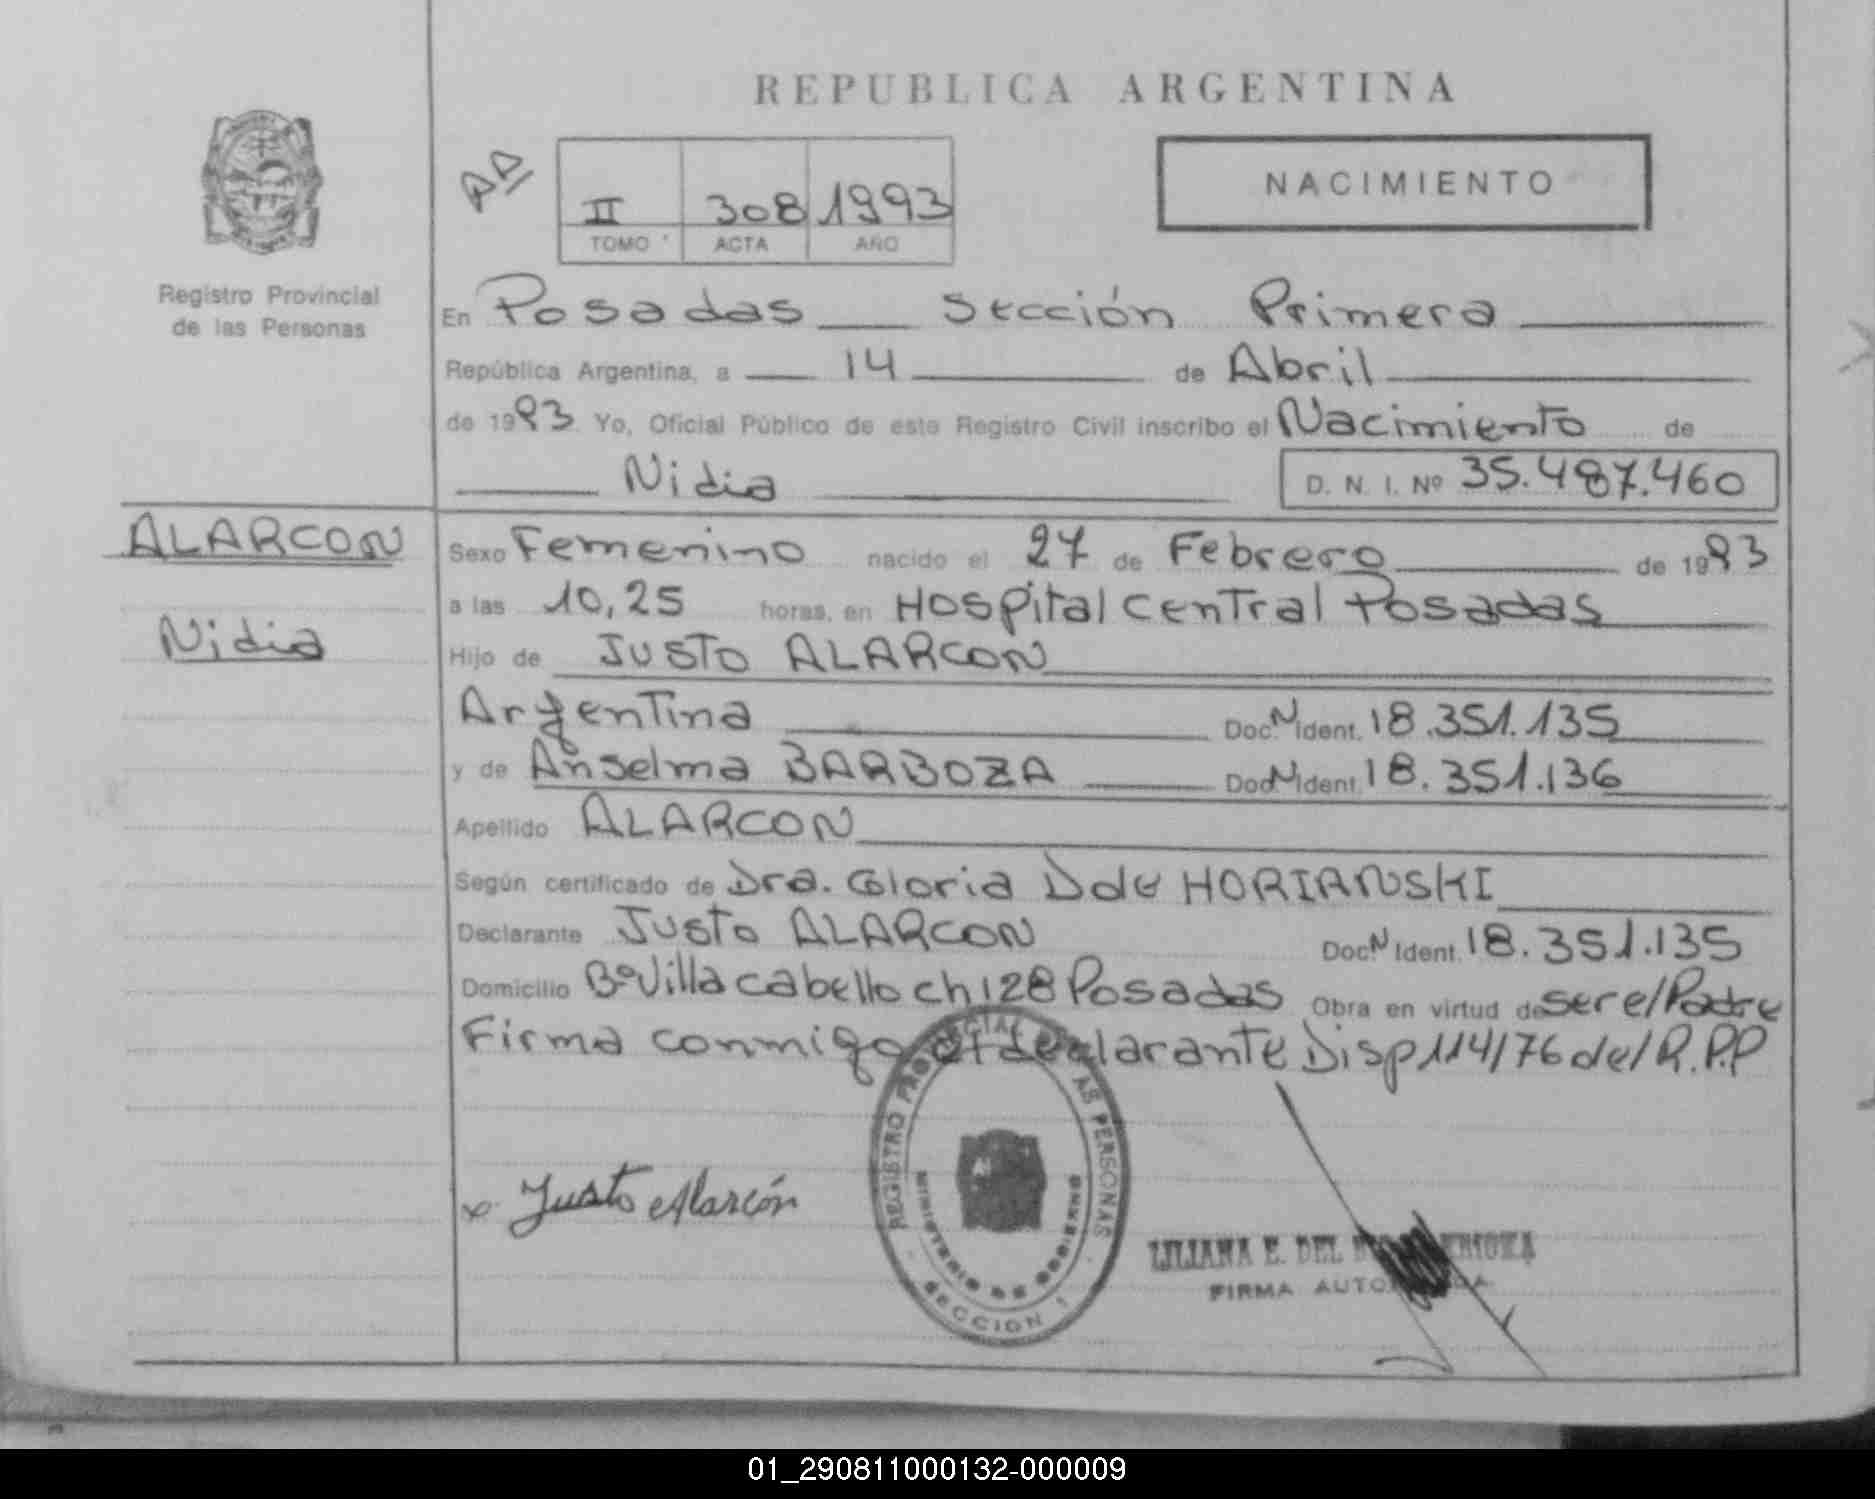 REPUBLICA ARGENTINA
AA
II 308 1993
TOMO ACTA AÑO
NACIMIENTO
Registro Provincial
de las Personas
En Posadas Sección Primera
República Argentina, a 14 de Abril
de 1993 Yo, Oficial Público de este Registro Civil inscribo el Nacimiento de
Nidia D. N. I. Nº 35.487.460
ALARCON
Nidia
Sexo Femenino nacido el 27 de Febrero de 1993
a las 10,25 horas, en Hospital Central Posadas
Hijo de Justo ALARCON
Argentina Doc. N Ident. 18.351.135
y de Anselma BARBOZA Doc. N Ident. 18.351.136
Apellido ALARCON
Según certificado de Dra. Gloria D de HORIANSKI
Declarante Justo ALARCON Doc. N Ident. 18.351.135
Domicilio Bº Villa cabello ch 128 Posadas Obra en virtud de ser el Padre
Firma conmigo el declarante Disp 114/76 del R.P.P
x Justo Alarcón
REGISTRO PROVINCIAL DE LAS PERSONAS
MINISTERIO DE GOBIERNO
SECCION 1
LILIANA E. DEL
FIRMA AUTORIZADA
01_290811000132-000009